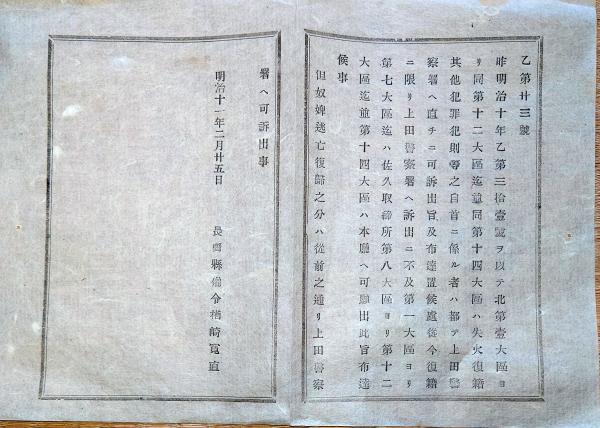 乙第廿三號
昨明治十年乙第三拾壹號ヲ以テ北第壹大區ヨ
リ同第十二大區迄並同第十四大區ハ失火復籍
其他犯罪犯則等之自首ニ係ル者ハ都テ上田警
察署ヘ直チニ可訴出旨及布達置候處從今復籍
ニ限リ上田警察署ヘ訴出ニ不及第一大區ヨリ
第七大區迄ハ佐久取締所第八大區ヨリ第十二
大區迄並第十四大區ハ本廳ヘ可願出此旨布達
候事
但奴婢逃亡復歸之分ハ從前之通リ上田警察
署ヘ可訴出事
明治十一年二月廿五日
長野縣權令楢崎寬直